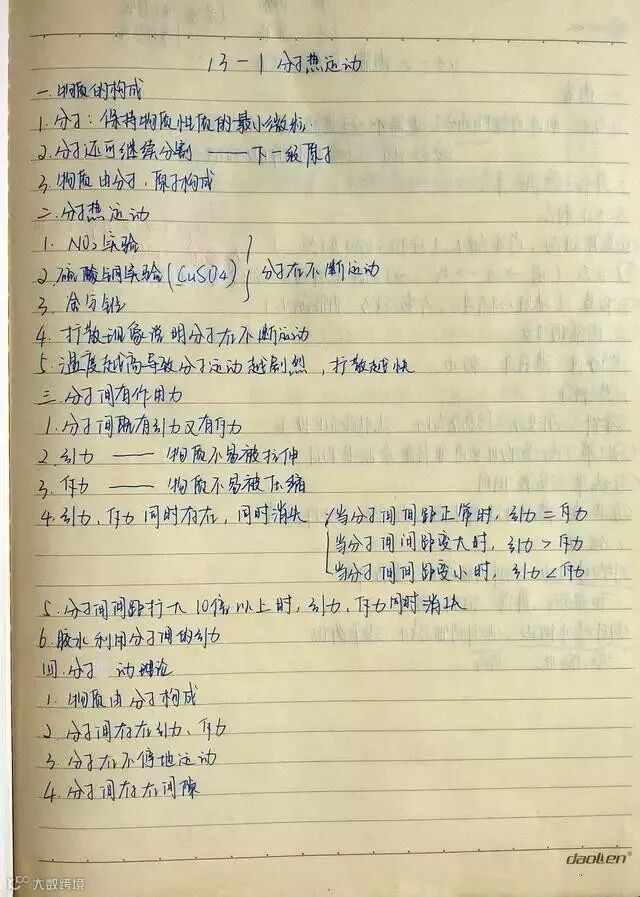 13-1 分子热运动
一.物质的构成
1.分子：保持物质性质的最小微粒.
2.分子还可继续分割 —— 下一级原子
3.物质由分子.原子构成
二.分子热运动
1. NO2实验
2.硫酸铜实验(CuSO4) 分子在不断运动
3.金与铅
4.扩散现象说明分子在不断运动
5.温度越高导致分子运动越剧烈，扩散越快
三.分子间有作用力
1.分子间既有引力又有斥力
2.引力 —— 物质不易被拉伸
3.斥力 —— 物质不易被压缩
4.引力、斥力同时存在，同时消失 当分子间间距正常时，引力=斥力
当分子间间距变大时，引力>斥力
当分子间间距变小时，引力<斥力
5.分子间间距扩大10倍以上时，引力、斥力同时消失
6.胶水利用分子间的引力
四.分子 动理论
1.物质由分子构成
2.分子间存在引力、斥力
3.分子在不停地运动
4.分子间存在间隙
daolien
大数跨境